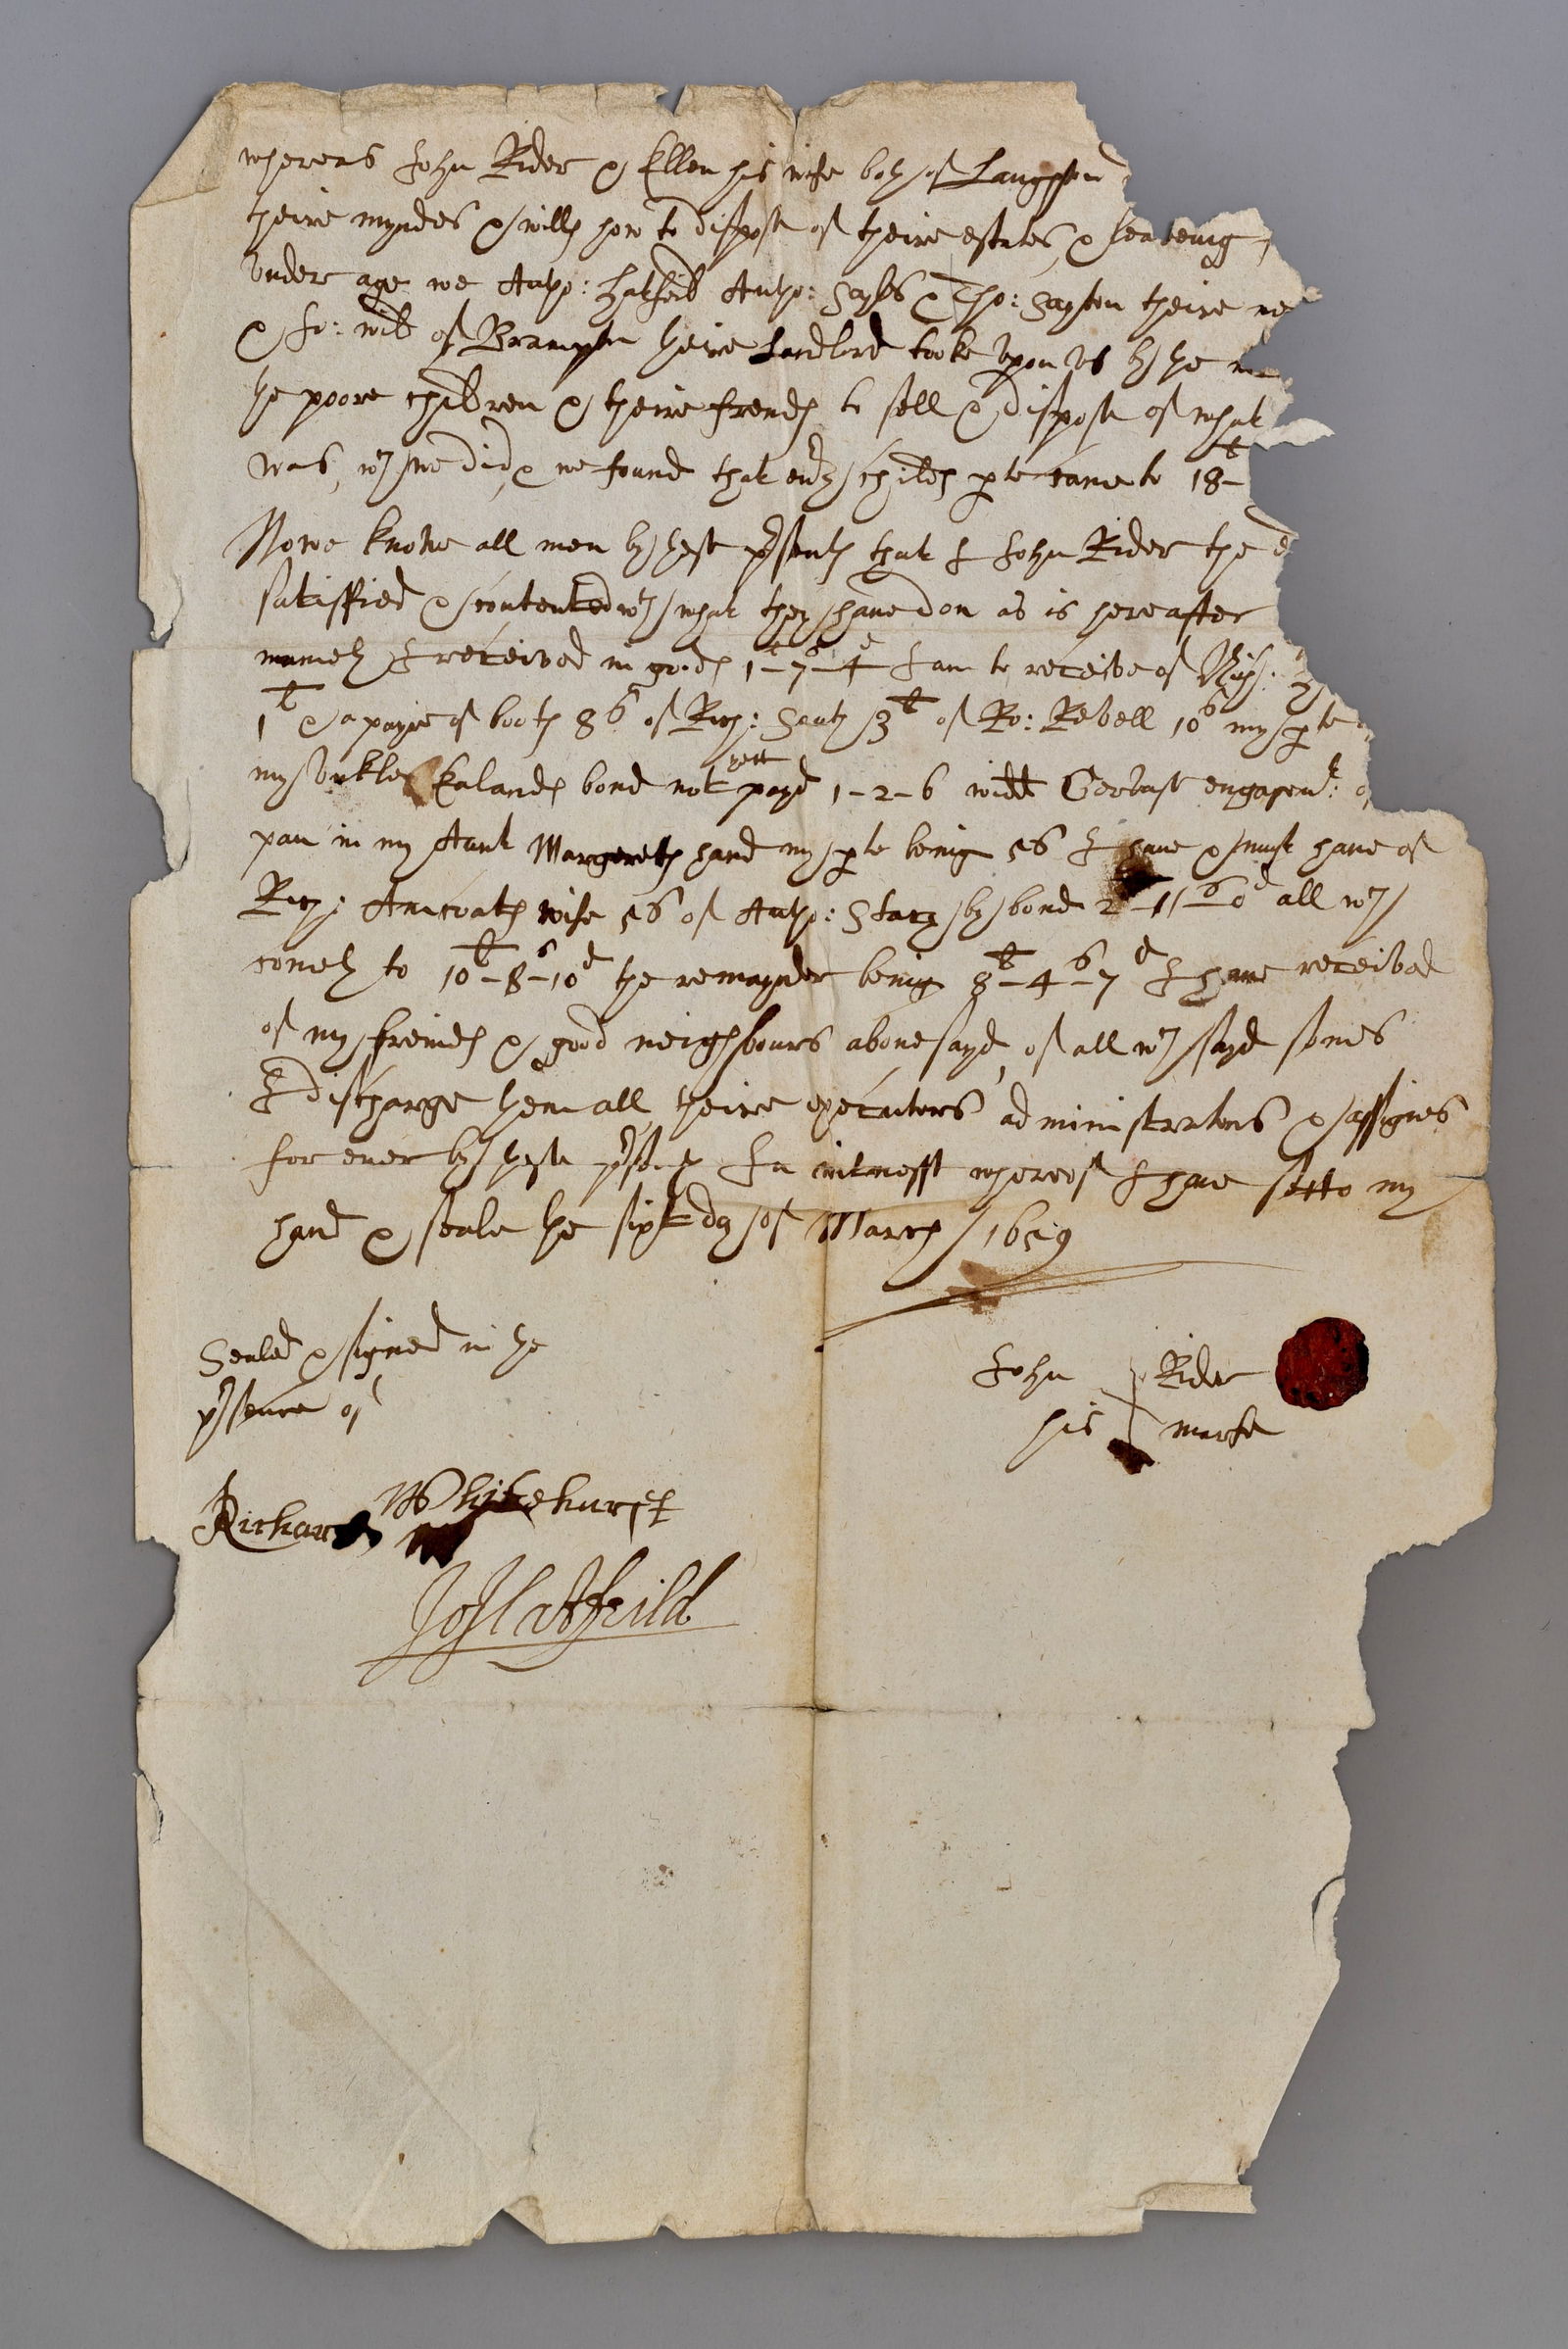 whereas John Rider & Ellen his wife both of Langhton
theire myndes & wills how to dispose of theire estates, & leaveing
vnder age we Antho: Hatfeild Antho: Sayles & Tho: theire
& Jo: of Brampton theire Landlord tooke vpon vs by the
the poore children & theire frends to sell & dispose of what
was, wch we did, & we found that eury childs pte came to 18
Nowe knowe all men by these prsents that I John Rider the
satisffied & contented wth what they haue don as is hereafter
namely I received in goods 1l-7s-4d I am to receive of
1l & a payre of boots 8s of Rich: 3l of Ro: Revell 10s my pte
my vnkle bond not yett payd 1-2-6 Gervase engagemt:
pan in my Aunt Margerets hand my pte being 5s I haue & must haue of
Rich: wife 5s of Antho: Stacy by bond 2-11s-0d all wch
cometh to 10l-8s-10d the remaynder being 8l-4s-7d I haue received
of my freinds & good neighbours abouesayd, of all wch sayd somes
I discharge them all, theire executors administrators & assignes
for euer by these prsents In witnesse whereof I haue setto my
hand & seale the sixt day of March / 1659
Sealed & signed in the
prsence of
John Rider
his marke
Richard Whitehurst
Jo Hatfeild